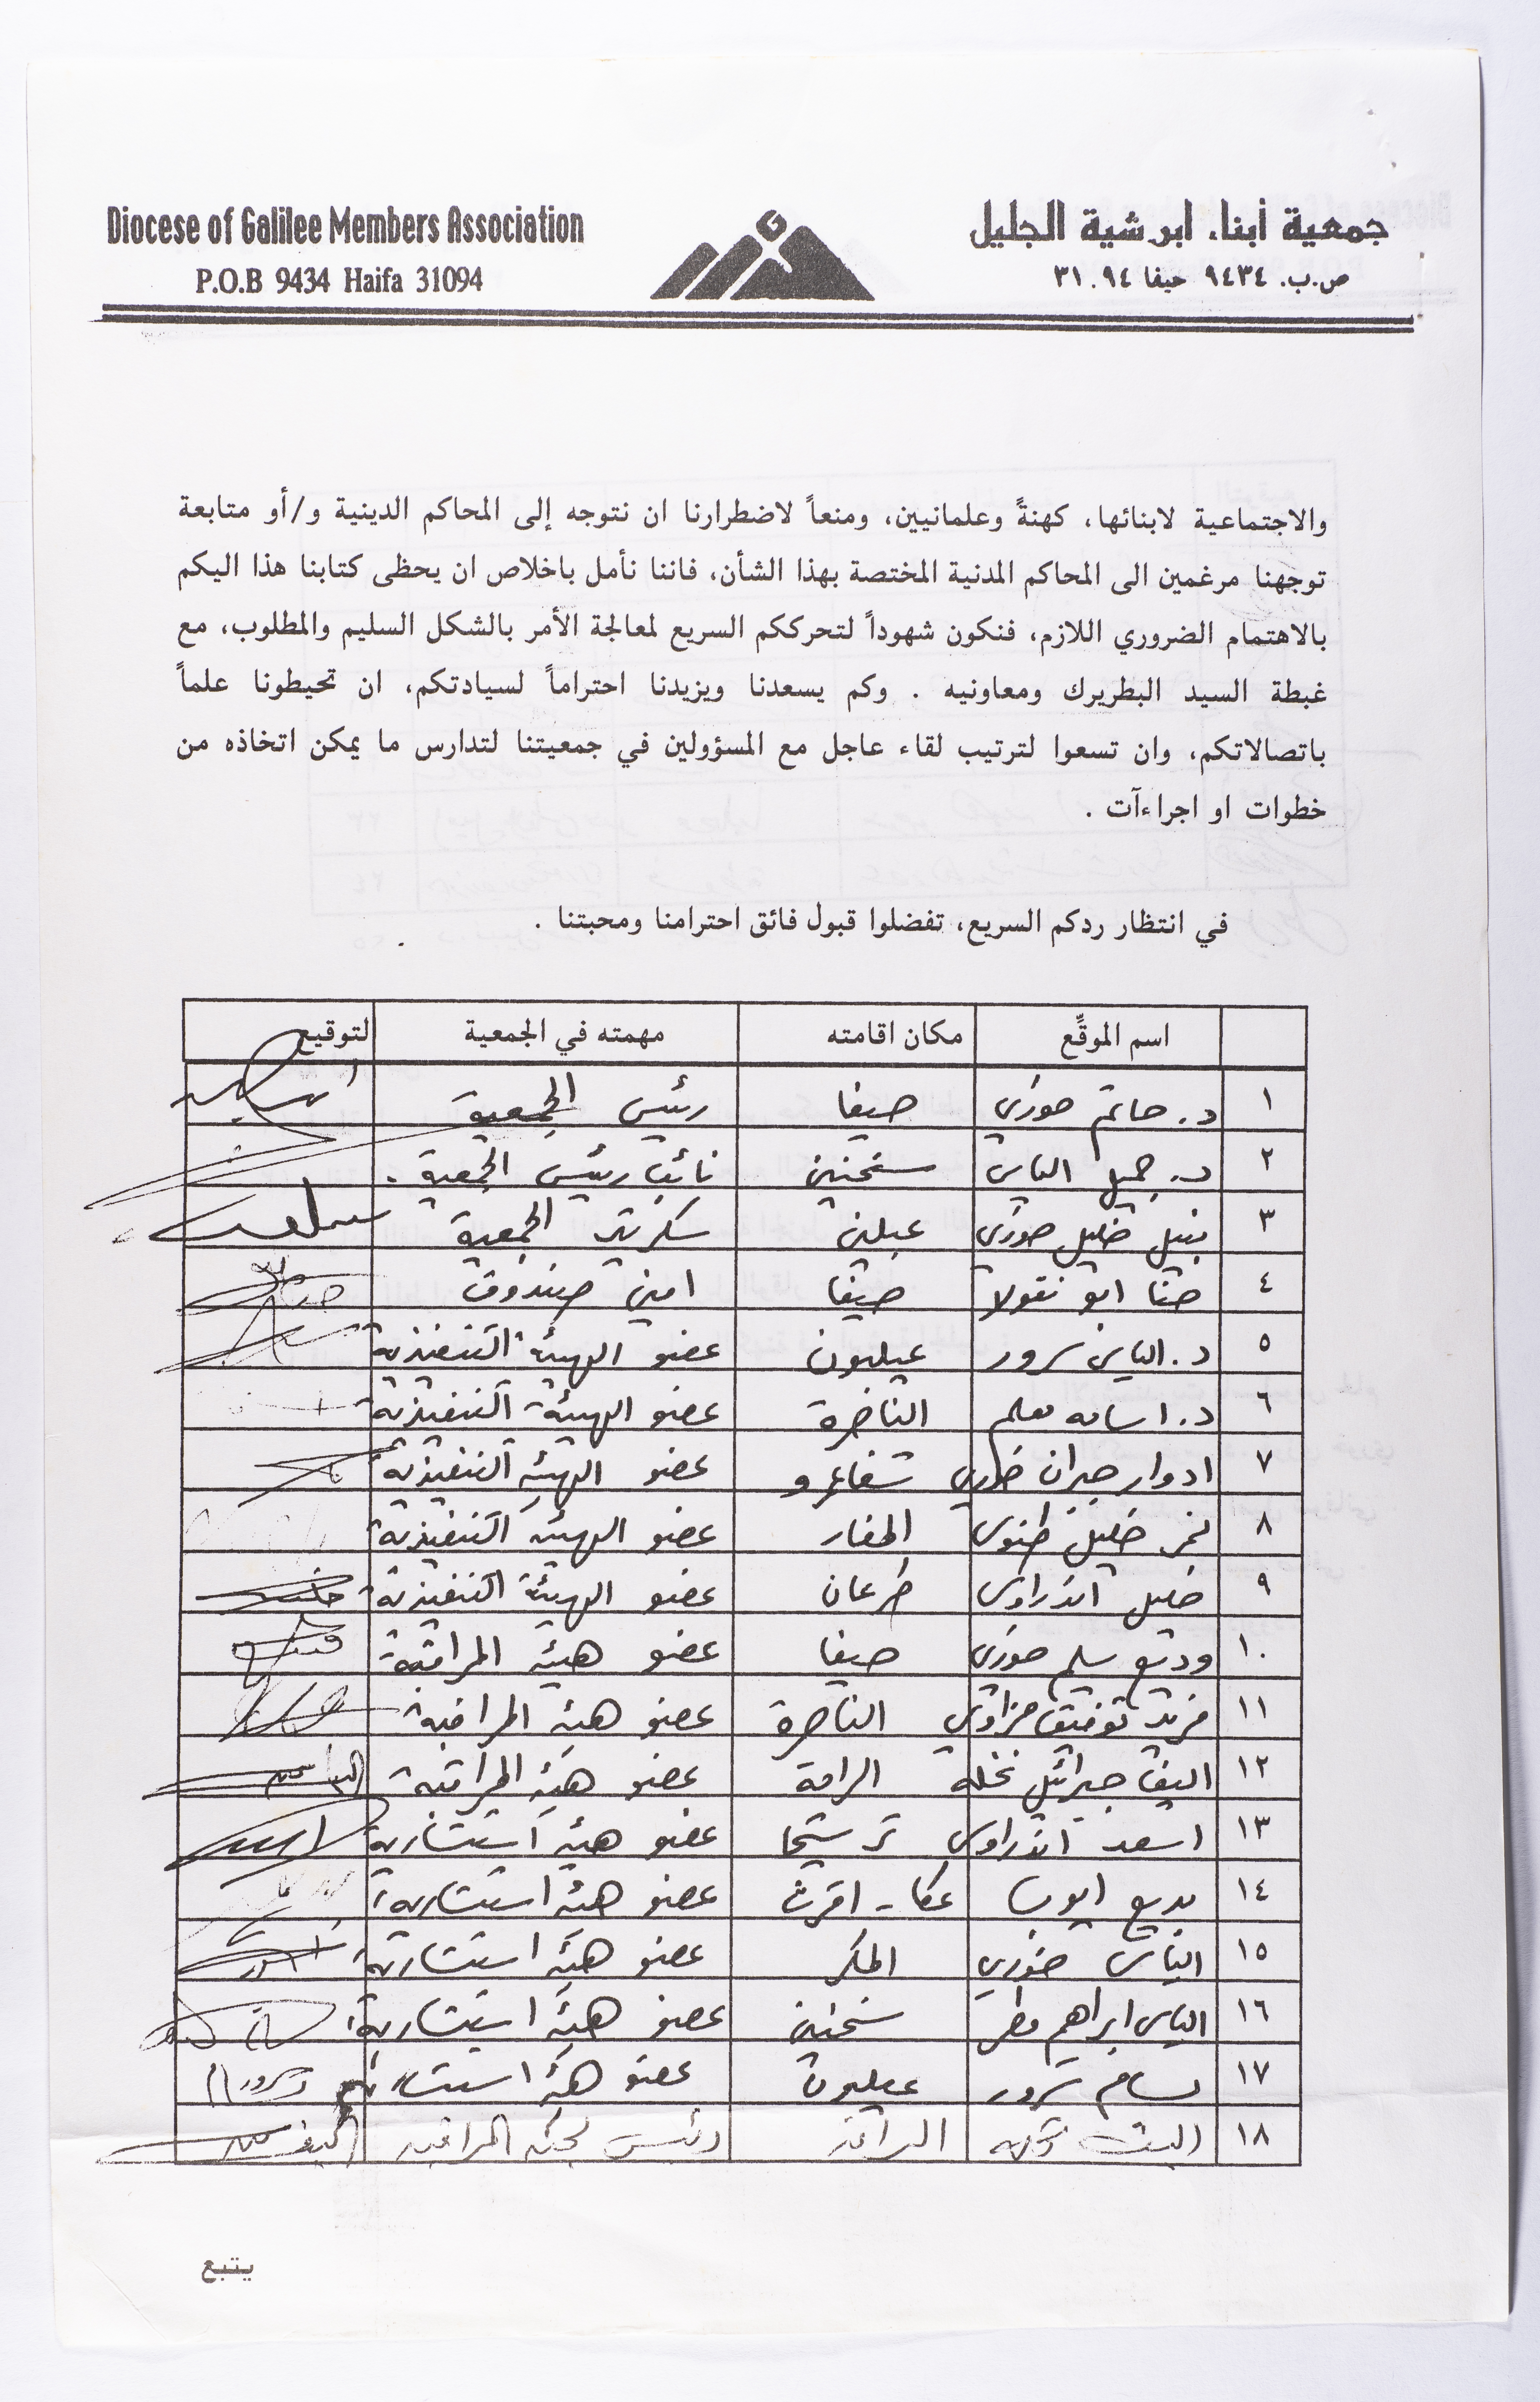 Diocese of Galilee Members Association
P.O.B 9434 Haifa 31094
جمعية أبناء ابرشية الجليل
ص.ب. ٩٤٣٤ حيفا ٣١٠٩٤
والاجتماعية لابنائها، كهنةً وعلمانيين، ومنعاً لاضطرارنا ان نتوجه إلى المحاكم الدينية و/أو متابعة
توجهنا مرغمين الى المحاكم المدنية المختصة بهذا الشأن، فاننا نأمل باخلاص ان يحظى كتابنا هذا اليكم
بالاهتمام الضروري اللازم، فنكون شهوداً لتحرككم السريع لمعالجة الأمر بالشكل السليم والمطلوب، مع
غبطة السيد البطريرك ومعاونيه . وكم يسعدنا ويزيدنا احتراماً لسيادتكم، ان تحيطونا علماً
باتصالاتكم، وان تسعوا لترتيب لقاء عاجل مع المسؤولين في جمعيتنا لتدارس ما يمكن اتخاذه من
خطوات او اجراءآت .
في انتظار ردكم السريع، تفضلوا قبول فائق احترامنا ومحبتنا .
اسم الموقِّع مكان اقامته مهمته في الجمعية التوقيع
١ د. حاتم خوري حيفا رئيس الجمعية
٢ د. جميل الياس سخنين نائب رئيس الجمعية
٣ نبيل خليل خوري عبلين سكرتير الجمعية
٤ حنا ابو نقولا حيفا امين صندوق
٥ د. الياس سرور عيلبون عضو الهيئة التنفيذية
٦ د. اسامه معلم الناصرة عضو الهيئة التنفيذية
٧ ادوار جبران خوري شفاعمرو عضو الهيئة التنفيذية
٨ نمر خليل طنوس المغار عضو الهيئة التنفيذية
٩ خليل اندراوس طرعان عضو الهيئة التنفيذية
١٠ وديع سليم خوري حيفا عضو هيئة المراقبة
١١ فريد توفيق حزاوي الناصرة عضو هيئة المراقبة
١٢ اليف جبرائيل نخله الرامة عضو هيئة المراقبة
١٣ اسعد اندراوس ترشيحا عضو هيئة استشارية
١٤ بديع ايوب عكا - اقرث عضو هيئة استشارية
١٥ الياس خوري المكر عضو هيئة استشارية
١٦ الياس ابراهيم مطر سخنين عضو هيئة استشارية
١٧ بسام سرور عيلبون عضو هيئة استشارية
١٨ اليف نخله الرامة رئيس لجنة المراقبة
يتبع